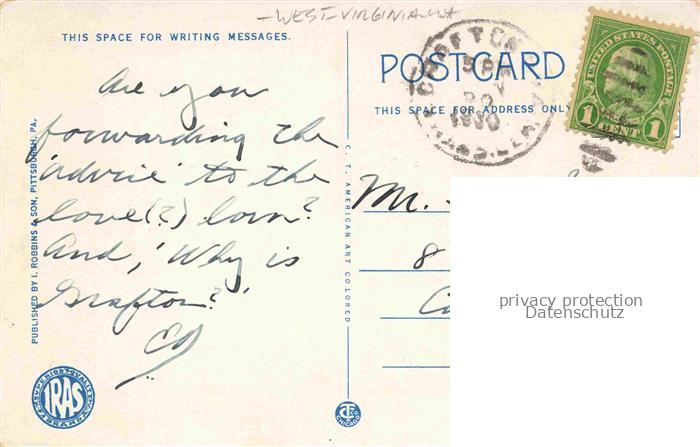 -WEST-VIRGINIA-
THIS SPACE FOR WRITING MESSAGES.
POSTCARD
THIS SPACE FOR ADDRESS ONLY
GRAFTON
SEP
1930
UNITED STATES POSTAGE
1 CENT 1
Are you
forwarding the
'advice' to the
love(?) lorn?
And, 'Why is
Grafton?'
Ed
Mr.
8
privacy protection
Datenschutz
PUBLISHED BY I. ROBBINS & SON, PITTSBURGH, PA.
C. T. AMERICAN ART COLORED
SUPERIOR QUALITY
IRAS
BRAND
CHICAGO